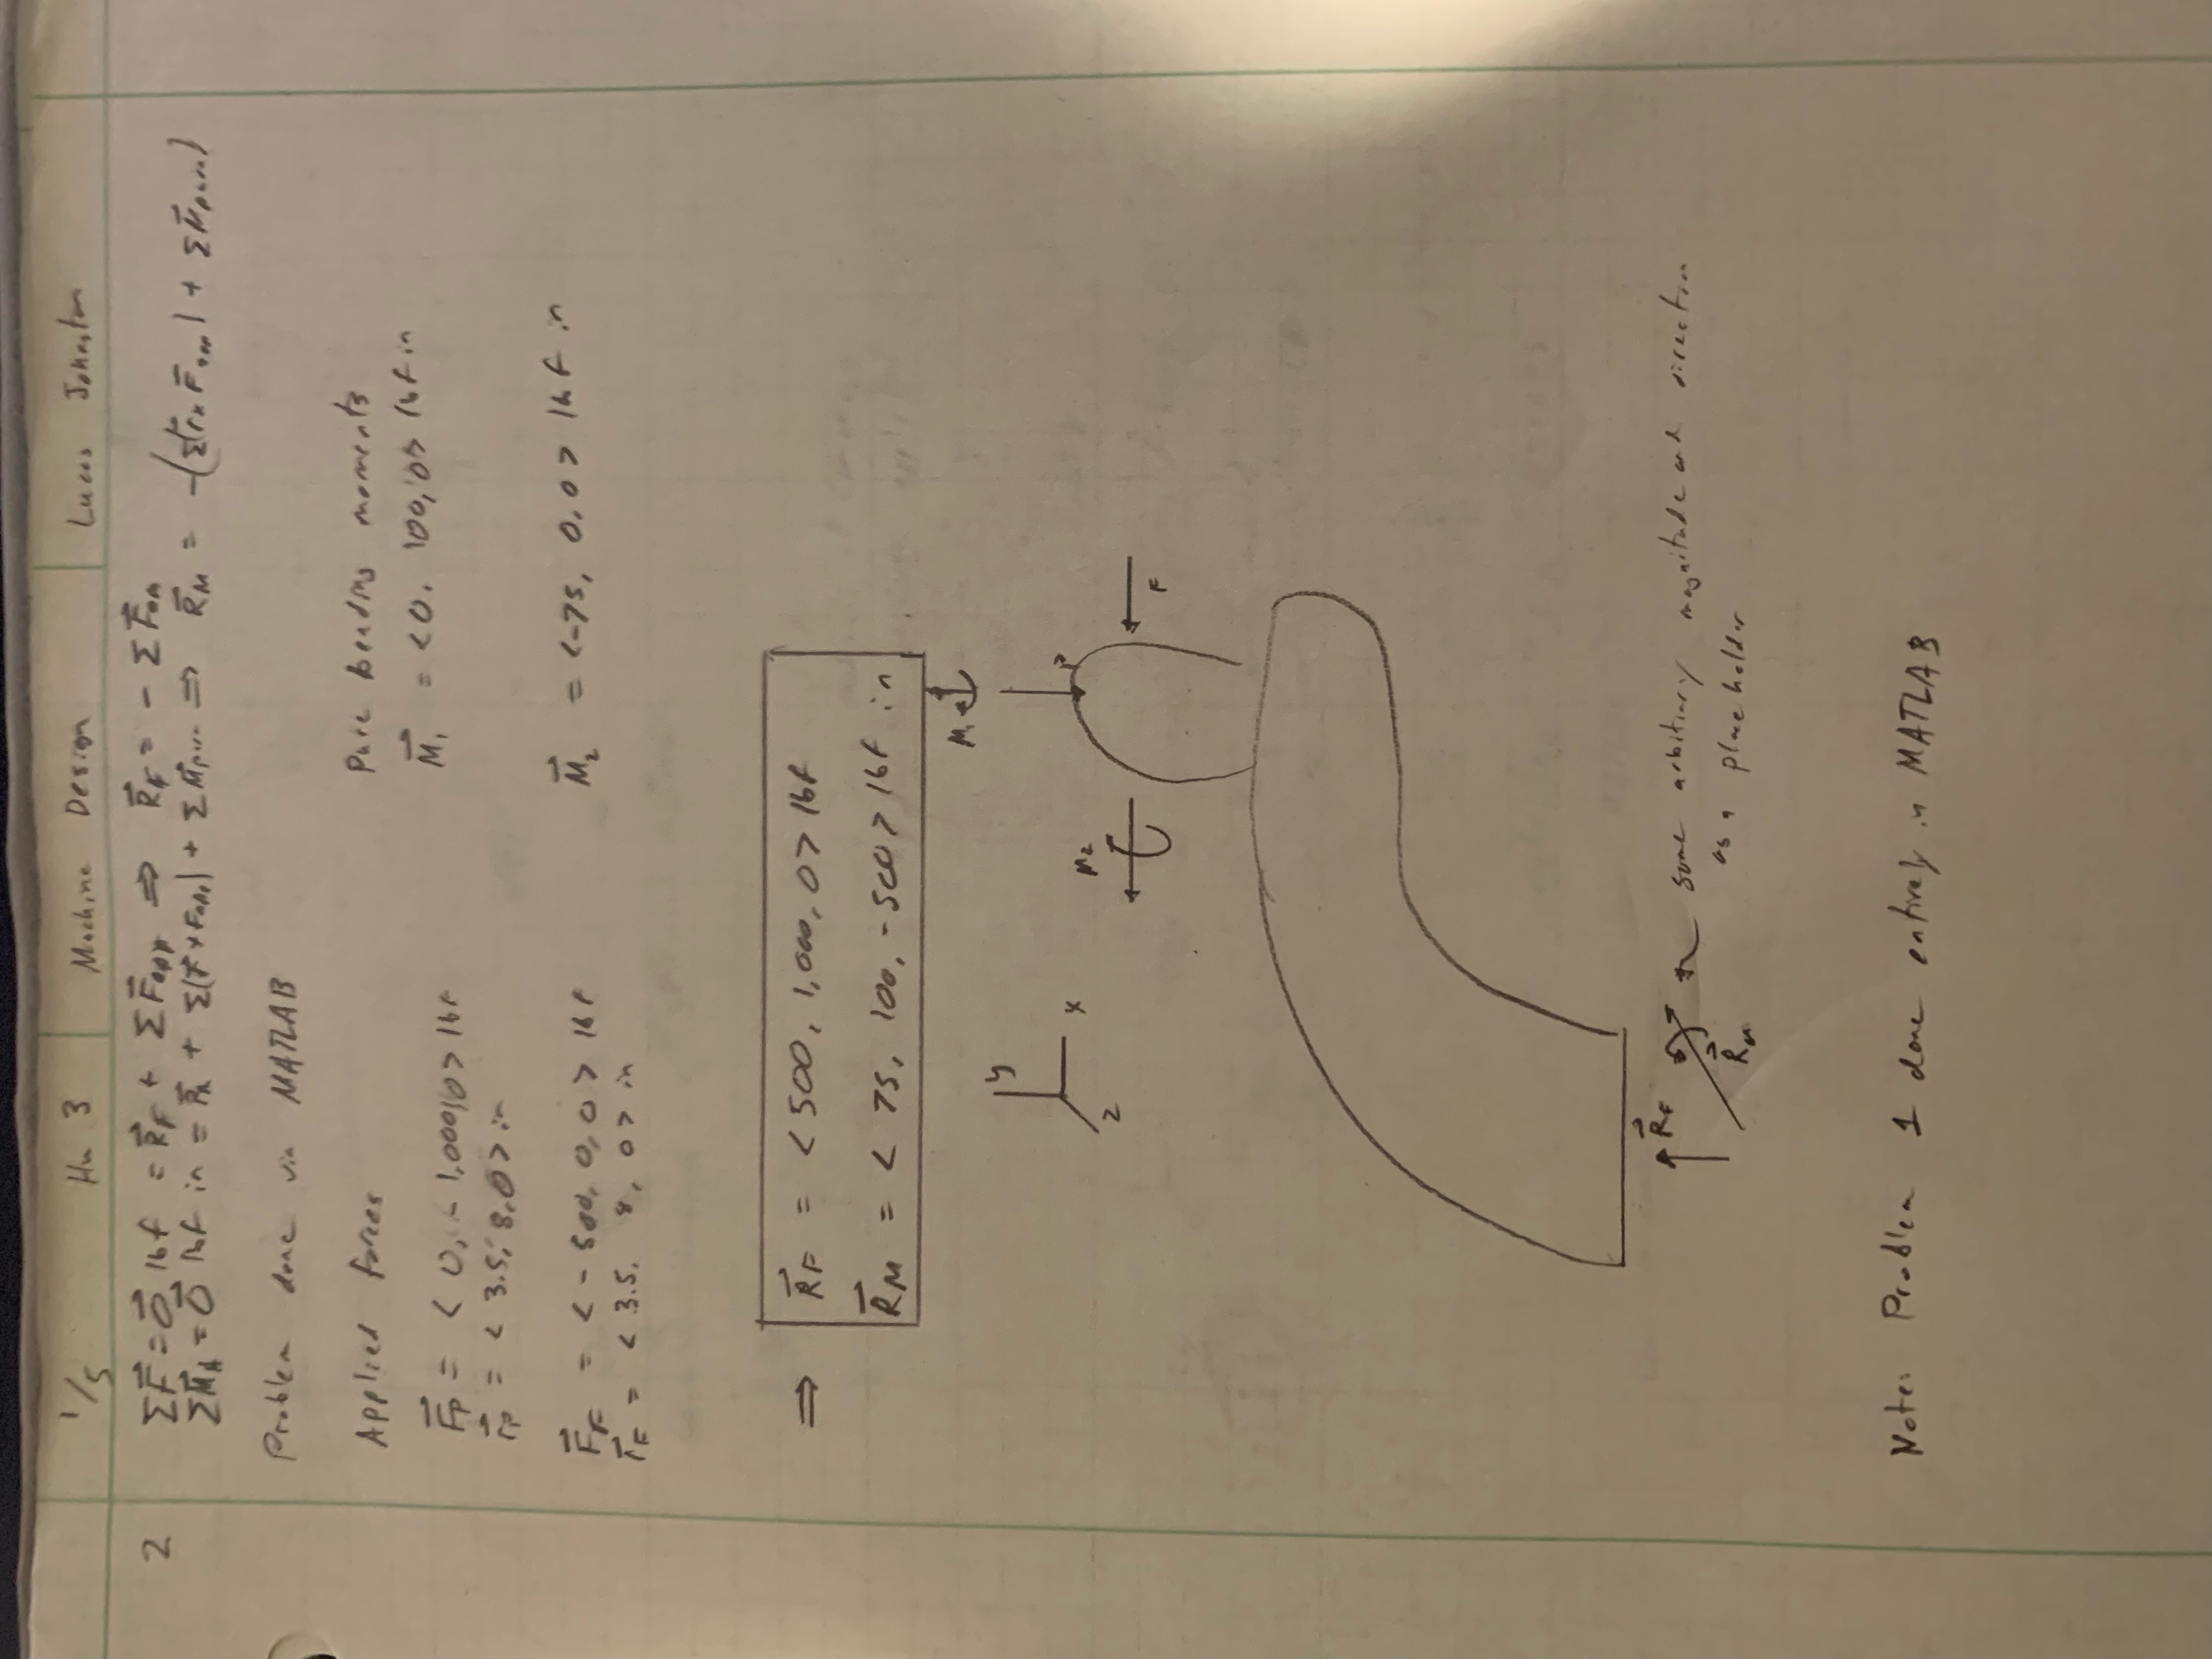 1/5 Hw 3 Machine Design Lucas Johnston
2 ΣF⃗ = 0⃗ lbf = R⃗F + ΣF⃗app ⇒ R⃗F = - ΣF⃗app
ΣM⃗A = 0⃗ lbf in = R⃗M + Σ(r⃗ x Fapp) + ΣM⃗pure ⇒ R⃗M = -(Σ(r⃗ x F⃗app) + ΣM⃗pure)
Problem done via MATLAB
Applied forces Pure bending moments
F⃗P = < 0, -1,000, 0 > lbf M⃗1 = < 0, 100, 0 > lbf in
r⃗P = < 3.5, 8, 0 > in
F⃗F = < -500, 0, 0 > lbf M⃗2 = < -75, 0, 0 > lbf in
r⃗F = < 3.5, 8, 0 > in
⇒ R⃗F = < 500, 1,000, 0 > lbf
R⃗M = < 75, 100, -500 > lbf in
M1
y
x
z
P
M2
F
R⃗F
R⃗M
some arbitiary magnitude and direction
as a place holder
Note: Problem 1 done entirely in MATLAB